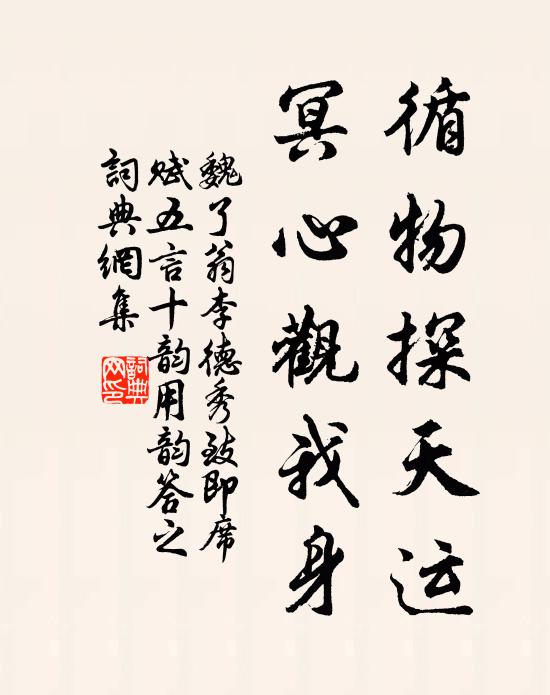 循物探天运
冥心觀我身
魏了翁李德秀致即席
赋五言十韵用韵答之
詞典網集
詞典网印